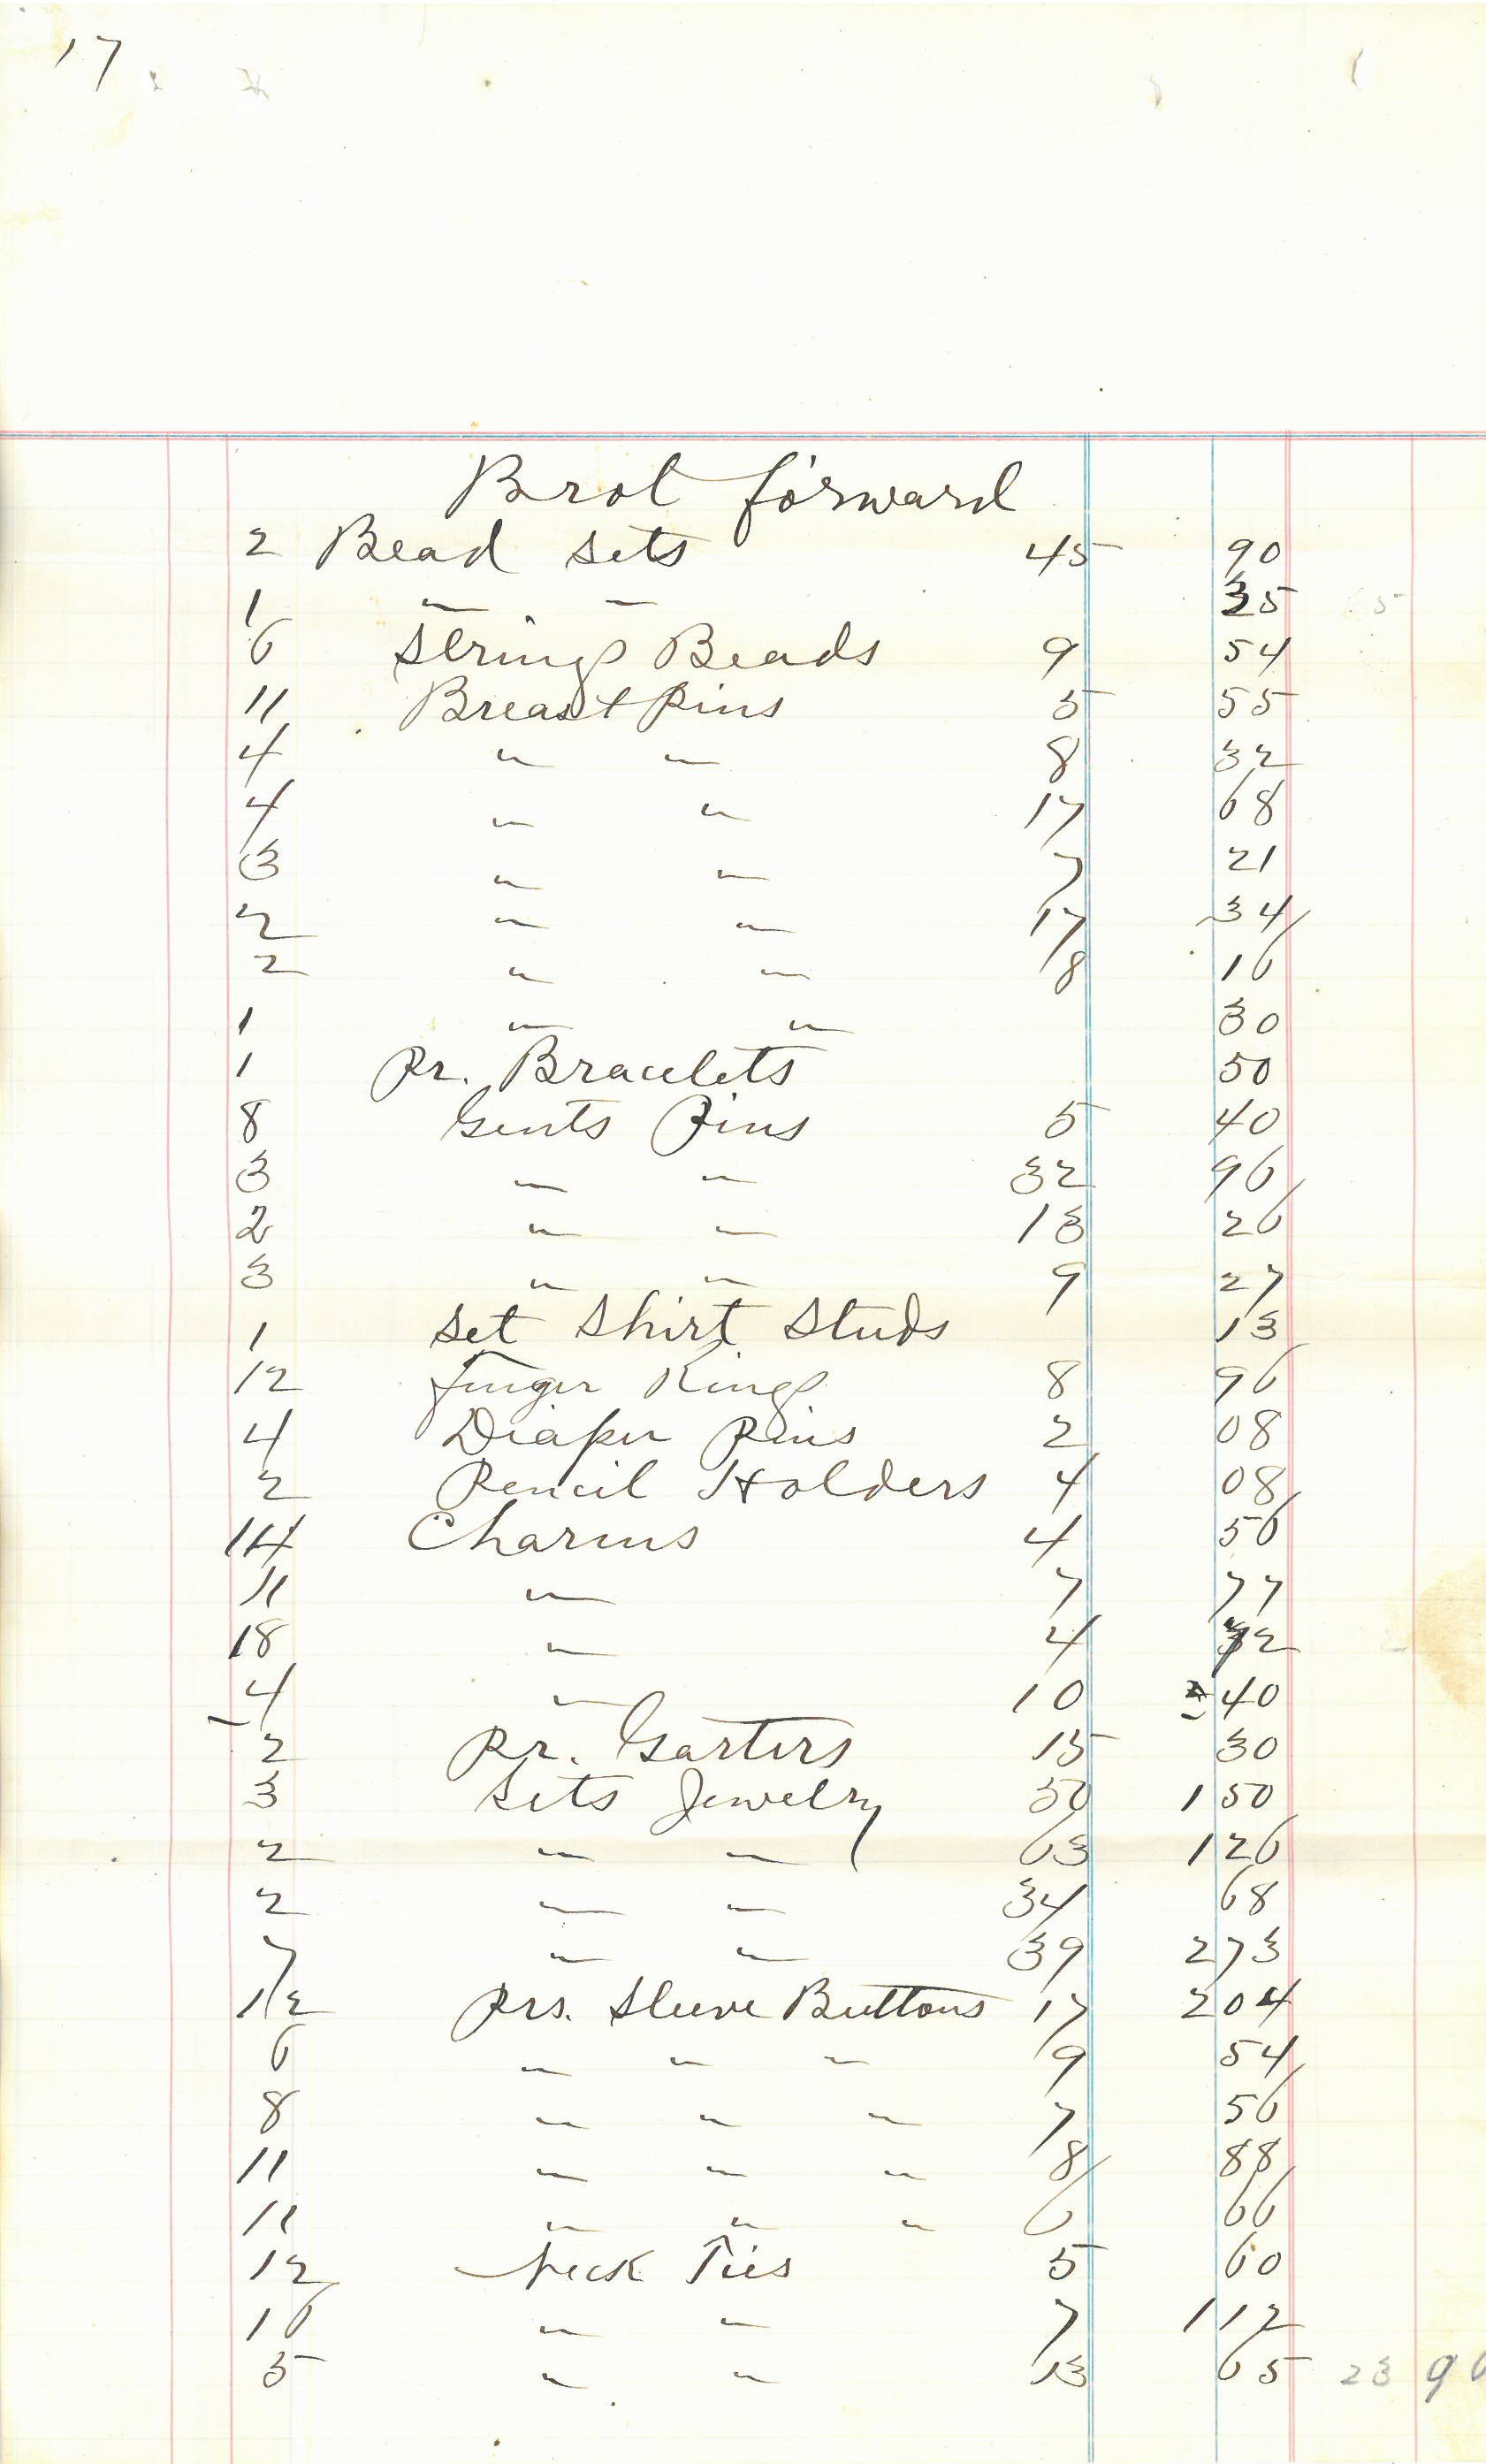 17
Brot forward
2 Bead sets 45 90
1 " " 35
6 Strings Beads 9 54
11 Breast Pins 5 55
4 " " 8 32
4 " " 17 68
3 " " 7 21
2 " " 17 34
2 " " 8 16
1 " " 30
1 Pr. Bracelets 50
8 Gents Pins 5 40
3 " " 32 96
2 " " 13 26
3 " " 9 27
1 Set Shirt Studs 13
12 finger Rings 8 96
4 Diaper Pins 2 08
2 Pencil Holders 4 08
14 Charms 4 56
11 " 7 77
18 " 4 72
4 " 10 40
2 Pr. Garters 15 30
3 Sets Jewelry 50 1 50
2 " " 63 1 26
2 " " 34 68
7 " " 39 2 73
12 Prs. Sleeve Buttons 17 2 04
6 " " " 9 54
8 " " " 7 56
11 " " " 8 88
11 " " " 6 66
12 Neck Ties 5 60
16 " " 7 1 12
5 " " 13 65 23 9